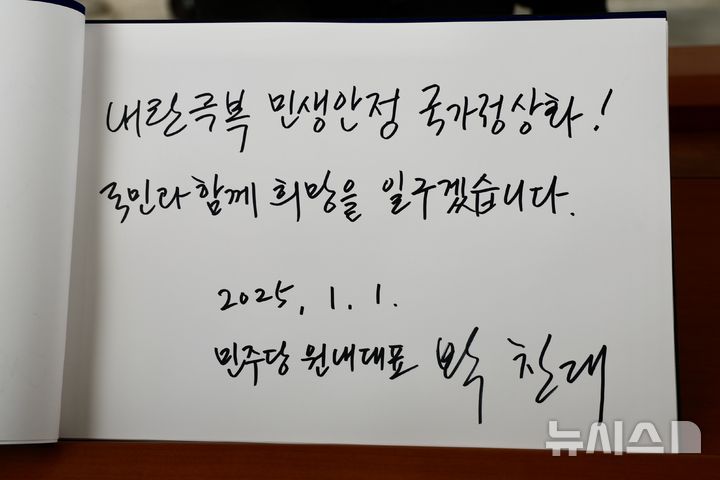 내란극복 민생안정 국가정상화!
국민과 함께 희망을 일구겠습니다.
2025. 1. 1.
민주당 원내대표 박찬대
뉴시스